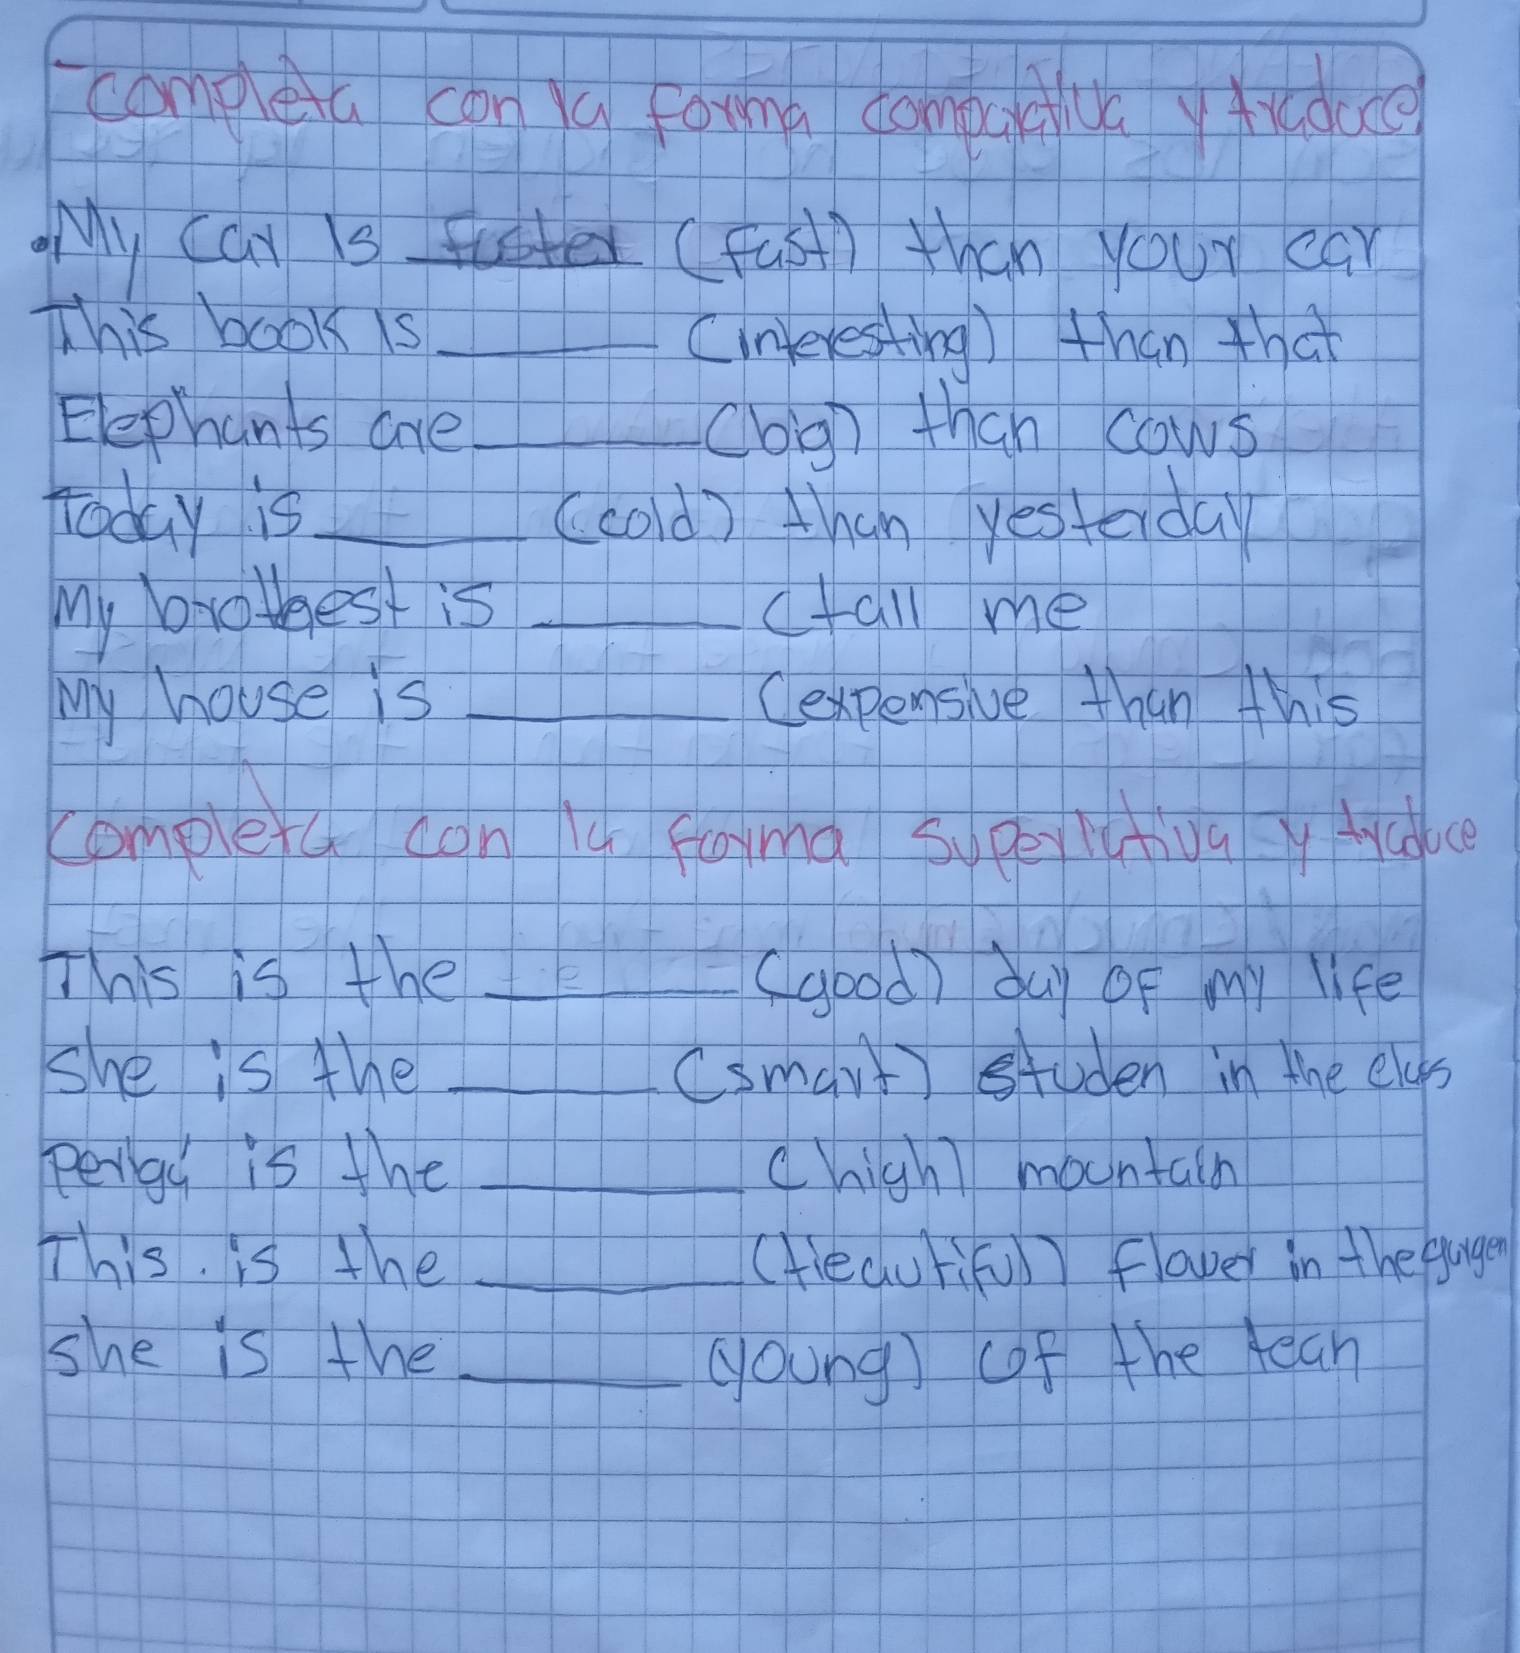 -completa con la forma comparativa y traduce
.My car is faster (fast) than your car
This book is ______ (interesting) than that
Elephants are ______ (big) than cows
Today is ______ (cold) than yesterday
My brothest is ______ (tall me
My house is ______ (expensive than this
completa con la forma superlativa y traduce
This is the ______ (good) day of my life
she is the ______ (smart) studen in the class
is the ______ (high) mountain
This. is the ______ (beautiful) flower in the gargen
she is the ______ (young) of the tean